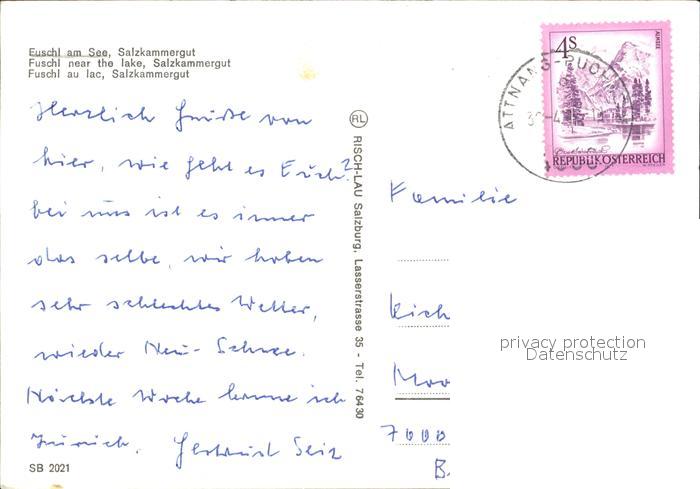 Euschl am See, Salzkammergut
Fuschl near the lake, Salzkammergut
Fuschl au lac, Salzkammergut
Herzlich Grüße von
hier, wie geht es Euch?
bei uns ist es immer
das selbe, wir haben
sehr schlechtes Wetter,
wieder Neu-Schnee.
Nächste Woche komme ich
zurück.
SB 2021
RL RISCH-LAU Salzburg, Lasserstrasse 35 - Tel. 76430
4S
ALMSEE
REPUBLIK ÖSTERREICH
ATTNANG-PUCH
Familie
7000
privacy protection
Datenschutz